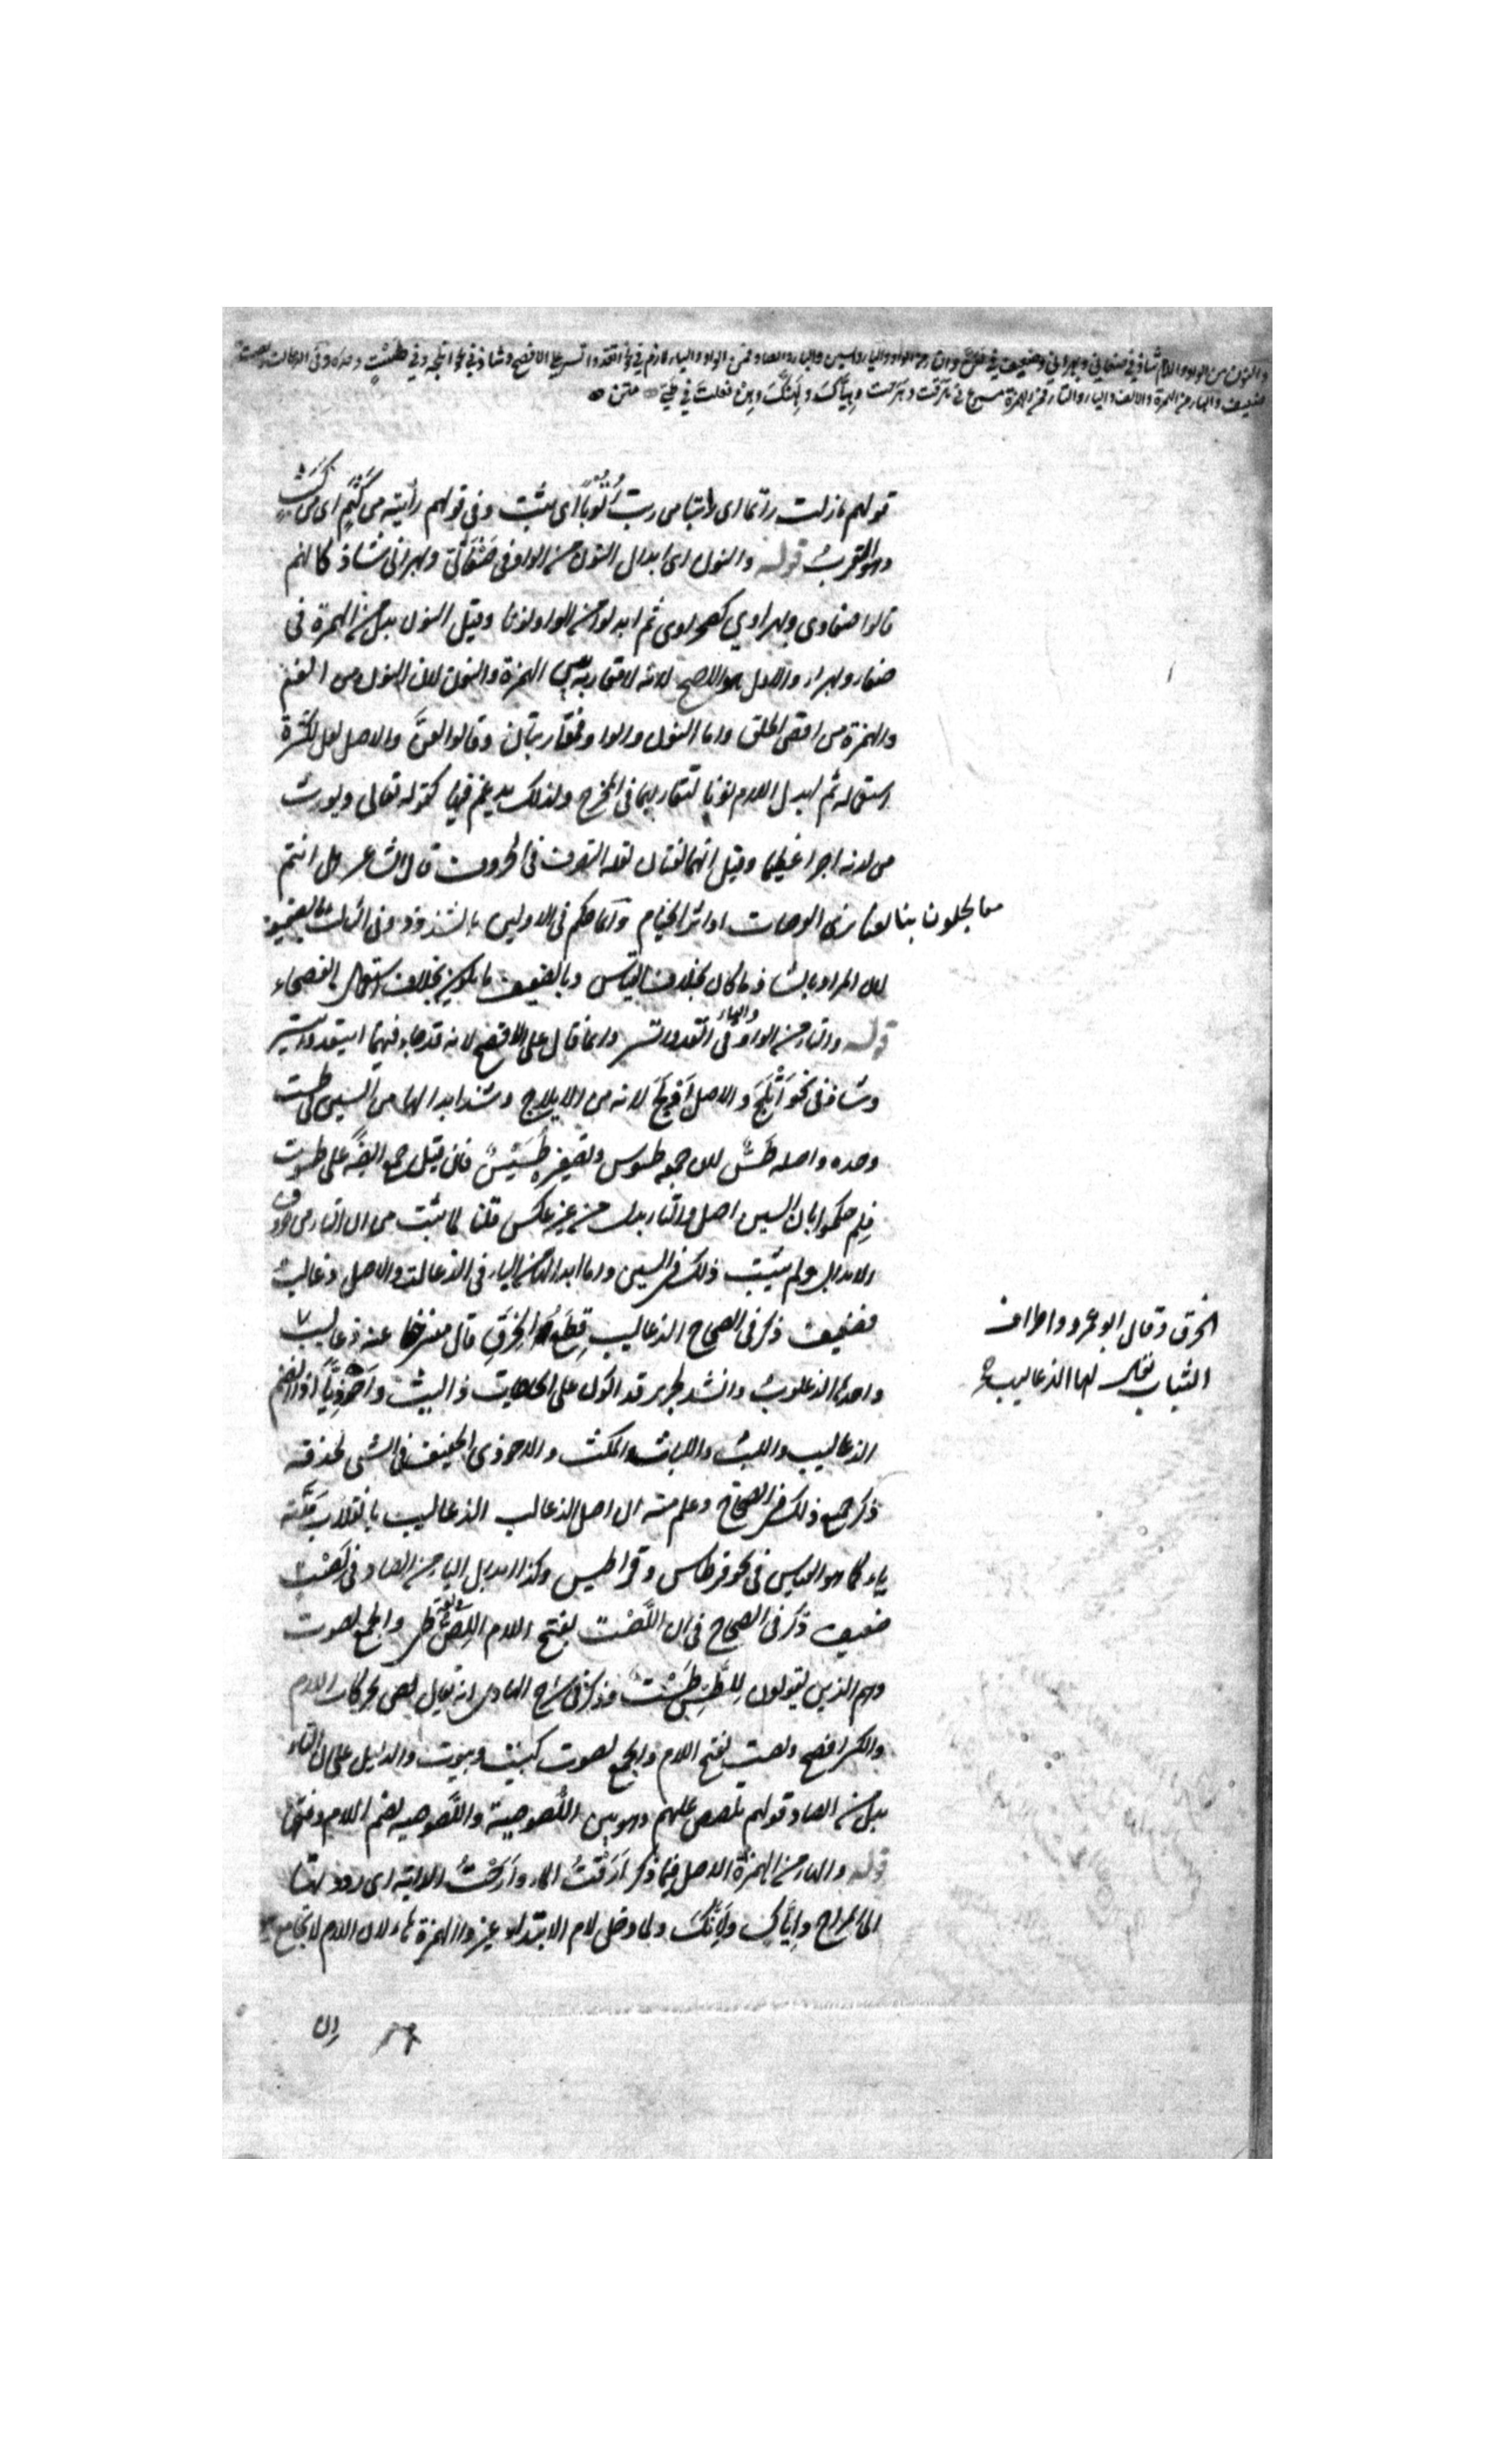 والنون من الواو واللام شاذ في صنعاني وبهراني وضعيف في لعن والتاء من الواو والياء والسين والباء والصاد فمن الواو والياء لازم في نحو اتعد واتسر على الافصح وشاذ في نحو اتلجه وفي طست وحده وفي الذعالت ولصت
ضعيف والهاء من الهمزة والالف والياء والتاء فمن الهمزة مسموع في هرقت وهرحت وهياك ولهنك وهن فعلت في طيّ متن
قولهم ما زلت راتما اى راتبا من رتب رتوبًا اى ثبت وفى قولهم رأيته من كثم اى من كثب
وهو القرب قوله والنون اى ابدال النون من الواو فى صنعانى وبهرانى شاذ كانهم
قالوا صنعاوى وبهراوي كصحراوى ثم ابدلوا من الواو نونا وقيل النون بدل من الهمزة فى
صنعاء وبهراء والاول هو الاصح لانه لا مقاربة بين الهمزة والنون لان النون من الفم
والهمزة من اقصى الحلق واما النون والواو فمتقاربتان وقالوا لعنّ والاصل لعل لكثرة
استعماله ثم ابدل اللام نونا لتقاربهما فى المخرج ولذلك يدغم فيها كقوله تعالى ويؤت
من لدنه اجرا عظيما وقيل انهما لغتان لقلة التصرف فى الحروف قال الشاعر هل انتم
معالجلون بنا لعنا نرى العرصات او اثر الخيام وانما حكم فى الاولين بالشذوذ وفى الثالث بالضعيف
لان المراد بالشاذ ما كان بخلاف القياس وبالضعيف ما يكون بخلاف استعمال الفصحاء
قوله والتاء من الواو والياء فى اتعد واتسر وانما قال على الافصح لانه قد جاء فيهما ايتعد وايتسر
وشاذ فى نحو أتْلَجَ والاصل أوْلَجَ لانه من الايلاج وشذ ابدالها من السين فى طست
وحده واصله طَسٌّ لان جمعه طسوس وتصغيره طُسَيْسٌ فان قيل جمع ايضًا على طسوت
فلم حكموا بان السين اصل والتاء بدل من غير عكس قلنا لما ثبت من ان التاء من حروف
الابدال ولم يثبت ذلك فى السين واما ابدالها من الباء فى الذعالت والاصل ذعالب
فضعيف ذكر فى الصحاح الذعاليب قِطَعُ الخِرَقِ قال منسرحا عنه ذعاليب
الخرق وقال ابو عمرو واطراف
الثياب يقال لها الذعاليب
واحدها الذعلوب وانشد لجرير قد اكون على الحاجات ذا لبث واحوذيًّا اذا انضم
الذعاليب واللبث واللباث المكث والاحوذى الخفيف فى الشئ لحذقه
ذكر جميع ذلك فى الصحاح وعلم منه ان اصل الذعالب الذعاليب بانقلاب مدّته
ياء كما هو القياس فى نحو قرطاس وقراطيس وكذا ابدال التاء من الصاد فى لَصْت
ضعيف ذكر فى الصحاح فى ان اللَّصْت بفتح اللام اللصّ فى لغة طى والجمع لصوت
وهم الذين يقولون للطَّسّ طَسْت وذكر فى شرح الهادى انه يقال لص بحركات اللام
والكسر افصح ولصت بفتح اللام والجمع لصوت كبيت وبيوت والدليل على ان التاء
بدل من الصاد قولهم تلصص عليهم وهو بين اللُّصوصية واللَّصوصية بضم اللام وفتحها
قوله والهاء من الهمزة الاصل فيما ذكر أرَقْتُ الماء وأرَحْتُ الدابة اى رددتها
الى المراح وإيّاك ولإنّك ولما دخل لام الابتداء غيروا الهمزة هاء لان اللام لا تجامع
ان